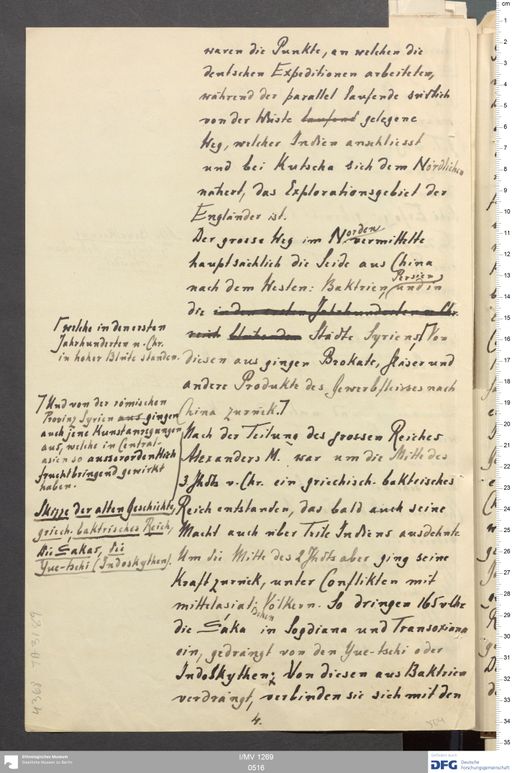 waren die Punkte, an welchen die
deutschen Expeditionen arbeiteten,
während der parallel laufende südlich
von der Wüste laufend gelegene
Weg, welcher Indien anschliesst
und bei Kutscha sich dem Nördlichen
nähert, das Explorationsgebiet der
Engländer ist.
Der grosse Weg im Norden vermittelte
hauptsächlich die Seide aus China
nach dem Westen: Baktrien, Persien, und in
die in den ersten Jahrhunderten n. Chr.
blühenden Städte Syriens,⌈ Von
⌈ welche in den ersten
Jahrhunderten n. Chr.
in hoher Blüte standen.
diesen aus gingen Brokate, Gläser und
andere Produkte des Gewerbfleisses nach
China zurück.⌉
⌉ Und von der römischen
Provinz Syrien aus gingen
auch jene Kunstanregungen
aus, welche in Central-
asien so ausserordentlich
fruchtbringend gewirkt
haben.
Nach der Teilung des grossen Reiches
Alexanders M. war um die Mitte des
3 Jhdts v. Chr. ein griechisch-baktrisches
Skizze der alten Geschichte,
griech. baktrisches Reich,
die Sakas, die
Yue-tschi (Indoskythen).
Reich entstanden, das bald auch seine
Macht auch über Teile Indiens ausdehnte
Um die Mitte des 2 Jhdts aber ging seine
Kraft zurück, unter Conflikten mit
mittelasiatischen Völkern. So dringen 165 v Chr
die Saka in Sogdiana und Transoxiana
ein, gedrängt von den Yue-tschi oder
Indoskythen; Von diesen aus Baktrien
verdrängt, verbinden sie sich mit den
4.
4368 TA 3189
Ethnologisches Museum
Staatliche Museen zu Berlin
I/MV 1269
0516
Gefördert durch
DFG Deutsche
Forschungsgemeinschaft